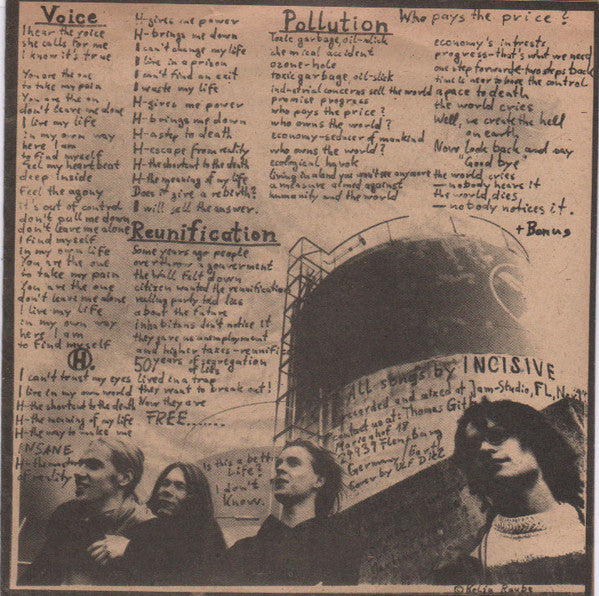 Voice
I hear the voice
she calls for me
I know it's true
You are the one
to take my pain
You are the one
don't leave me alone
I live my life
in my own way
here I am
to find myself
Feel my heart beat
deep inside
Feel the agony
it's out of control
don't pull me down
don't leave me alone
I find myself
in my own life
You are the one
to take my pain
You are the one
don't leave me alone
I live my life
in my own way
here I am
to find myself
H.
I can't trust my eyes
I live in my own world
H-the shortcut to the death
H-the meaning of my life
H-the way to make me
INSANE
H-the
of reality
H-gives me power
H-brings me down
I can't change my life
I live in a prison
I can't find an exit
I waste my life
H-gives me power
H-brings me down
H-a step to death
H-escape from reality
H-the shortcut to the death
H-the meaning of my life
Does it give a rebirth?
I will sell the answer.
Reunification
Some years ago people
overthrow a gouverment
the Wall felt down
citizen wanted the reunification
rulling party told lies
about the future
inhabitans don't notice it
they gave us unemployment
and higher taxes-reunific
50! years of segregation
of lies
lived in a trap
they want to break out!
Now they are
FREE.......
Is this a better
Life?
I don't
know.
Pollution
Toxic garbage, oil-slick
chemical accident
ozone-hole
toxic garbage, oil-slick
industrial concerns sell the world
promise progress
who pays the price?
who owns the world?
economy-seducer of mankind
who owns the world?
ecological havok
living in a land you won't see anymore
a measure aimed against
humanity and the world
Who pays the price?
economy's intrests
progress-that's what we need
one step forward-two steps back
time is near to lose the control
apace to death
the world cries
Well, we create the hell
on earth
Now look back and say
"Good bye"
the world cries
- nobody hears it
the world dies
- nobody notices it.
+ Bonus
All songs by INCISIVE
recorded and mixed at Jam-Studio, FL,
at: Thomas
24937 Flensburg
Germany/
Cover by ULF
©